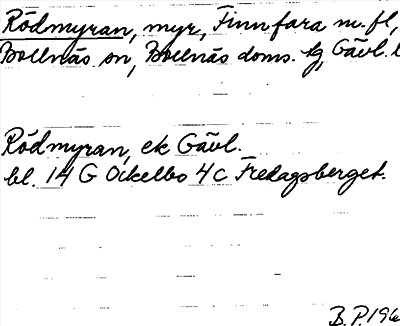 Rödmyran, myr, Finnfara m. fl,
Bollnäs sn, Bollnäs doms. tg, Gävl. l
Rödmyran, ek Gävl.
bl. 14 G Ockelbo 4 c Fredagsberget.
B. P. 196